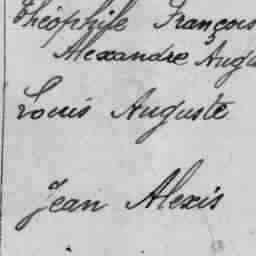 Théophile François
Alexandre Augu
Louis Auguste
Jean Alexis